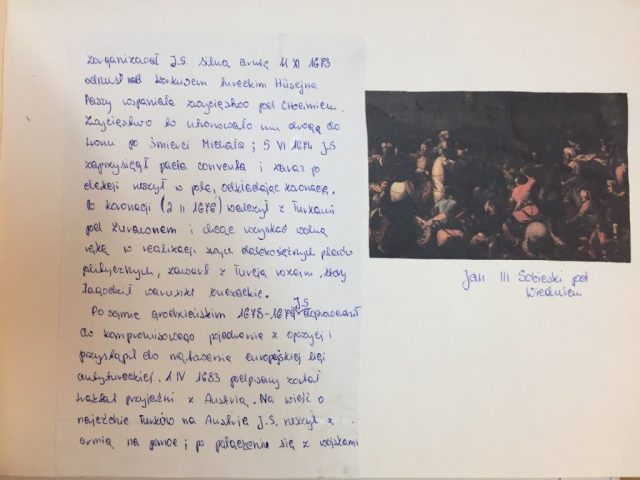 Zorganizował J.S. silną armię 11 XI 1673
odniósł nad korpusem tureckim Hüsejna
Paszy wspaniałe zwycięstwo pod Chocimiem.
Zwycięstwo to utorowało mu drogę do
tronu po śmierci Michała; 5 VI 1674 J.S
zaprzysiągł pacta conventa i zaraz po
elekcji ruszył w pole, odkładając koronację.
Po koronacji (2 II 1676) walczył z Turkami
pod Żurawnem i chcąc uzyskać wolną
rękę w realizacji swych dalekosiężnych planów
politycznych, zawarł z Turcją rozejm, który
łagodził warunki buczackie.
Po sejmie grodzieńskim 1678-1679 J.S. doprowadził
do kompromisowego pojednania z opozycją i
przystąpił do montowania europejskiej ligi
antytureckiej. 1 IV 1683 podpisany został
traktat przyjaźni z Austrią. Na wieść o
najeździe Turków na Austrię J.S. ruszył z
armią na pomoc; po połączeniu się z wojskami
Jan III Sobieski pod
Wiedniem